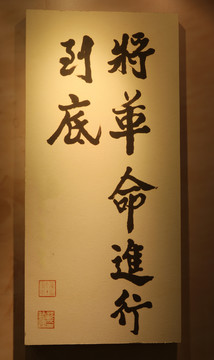 將革命進行
到底